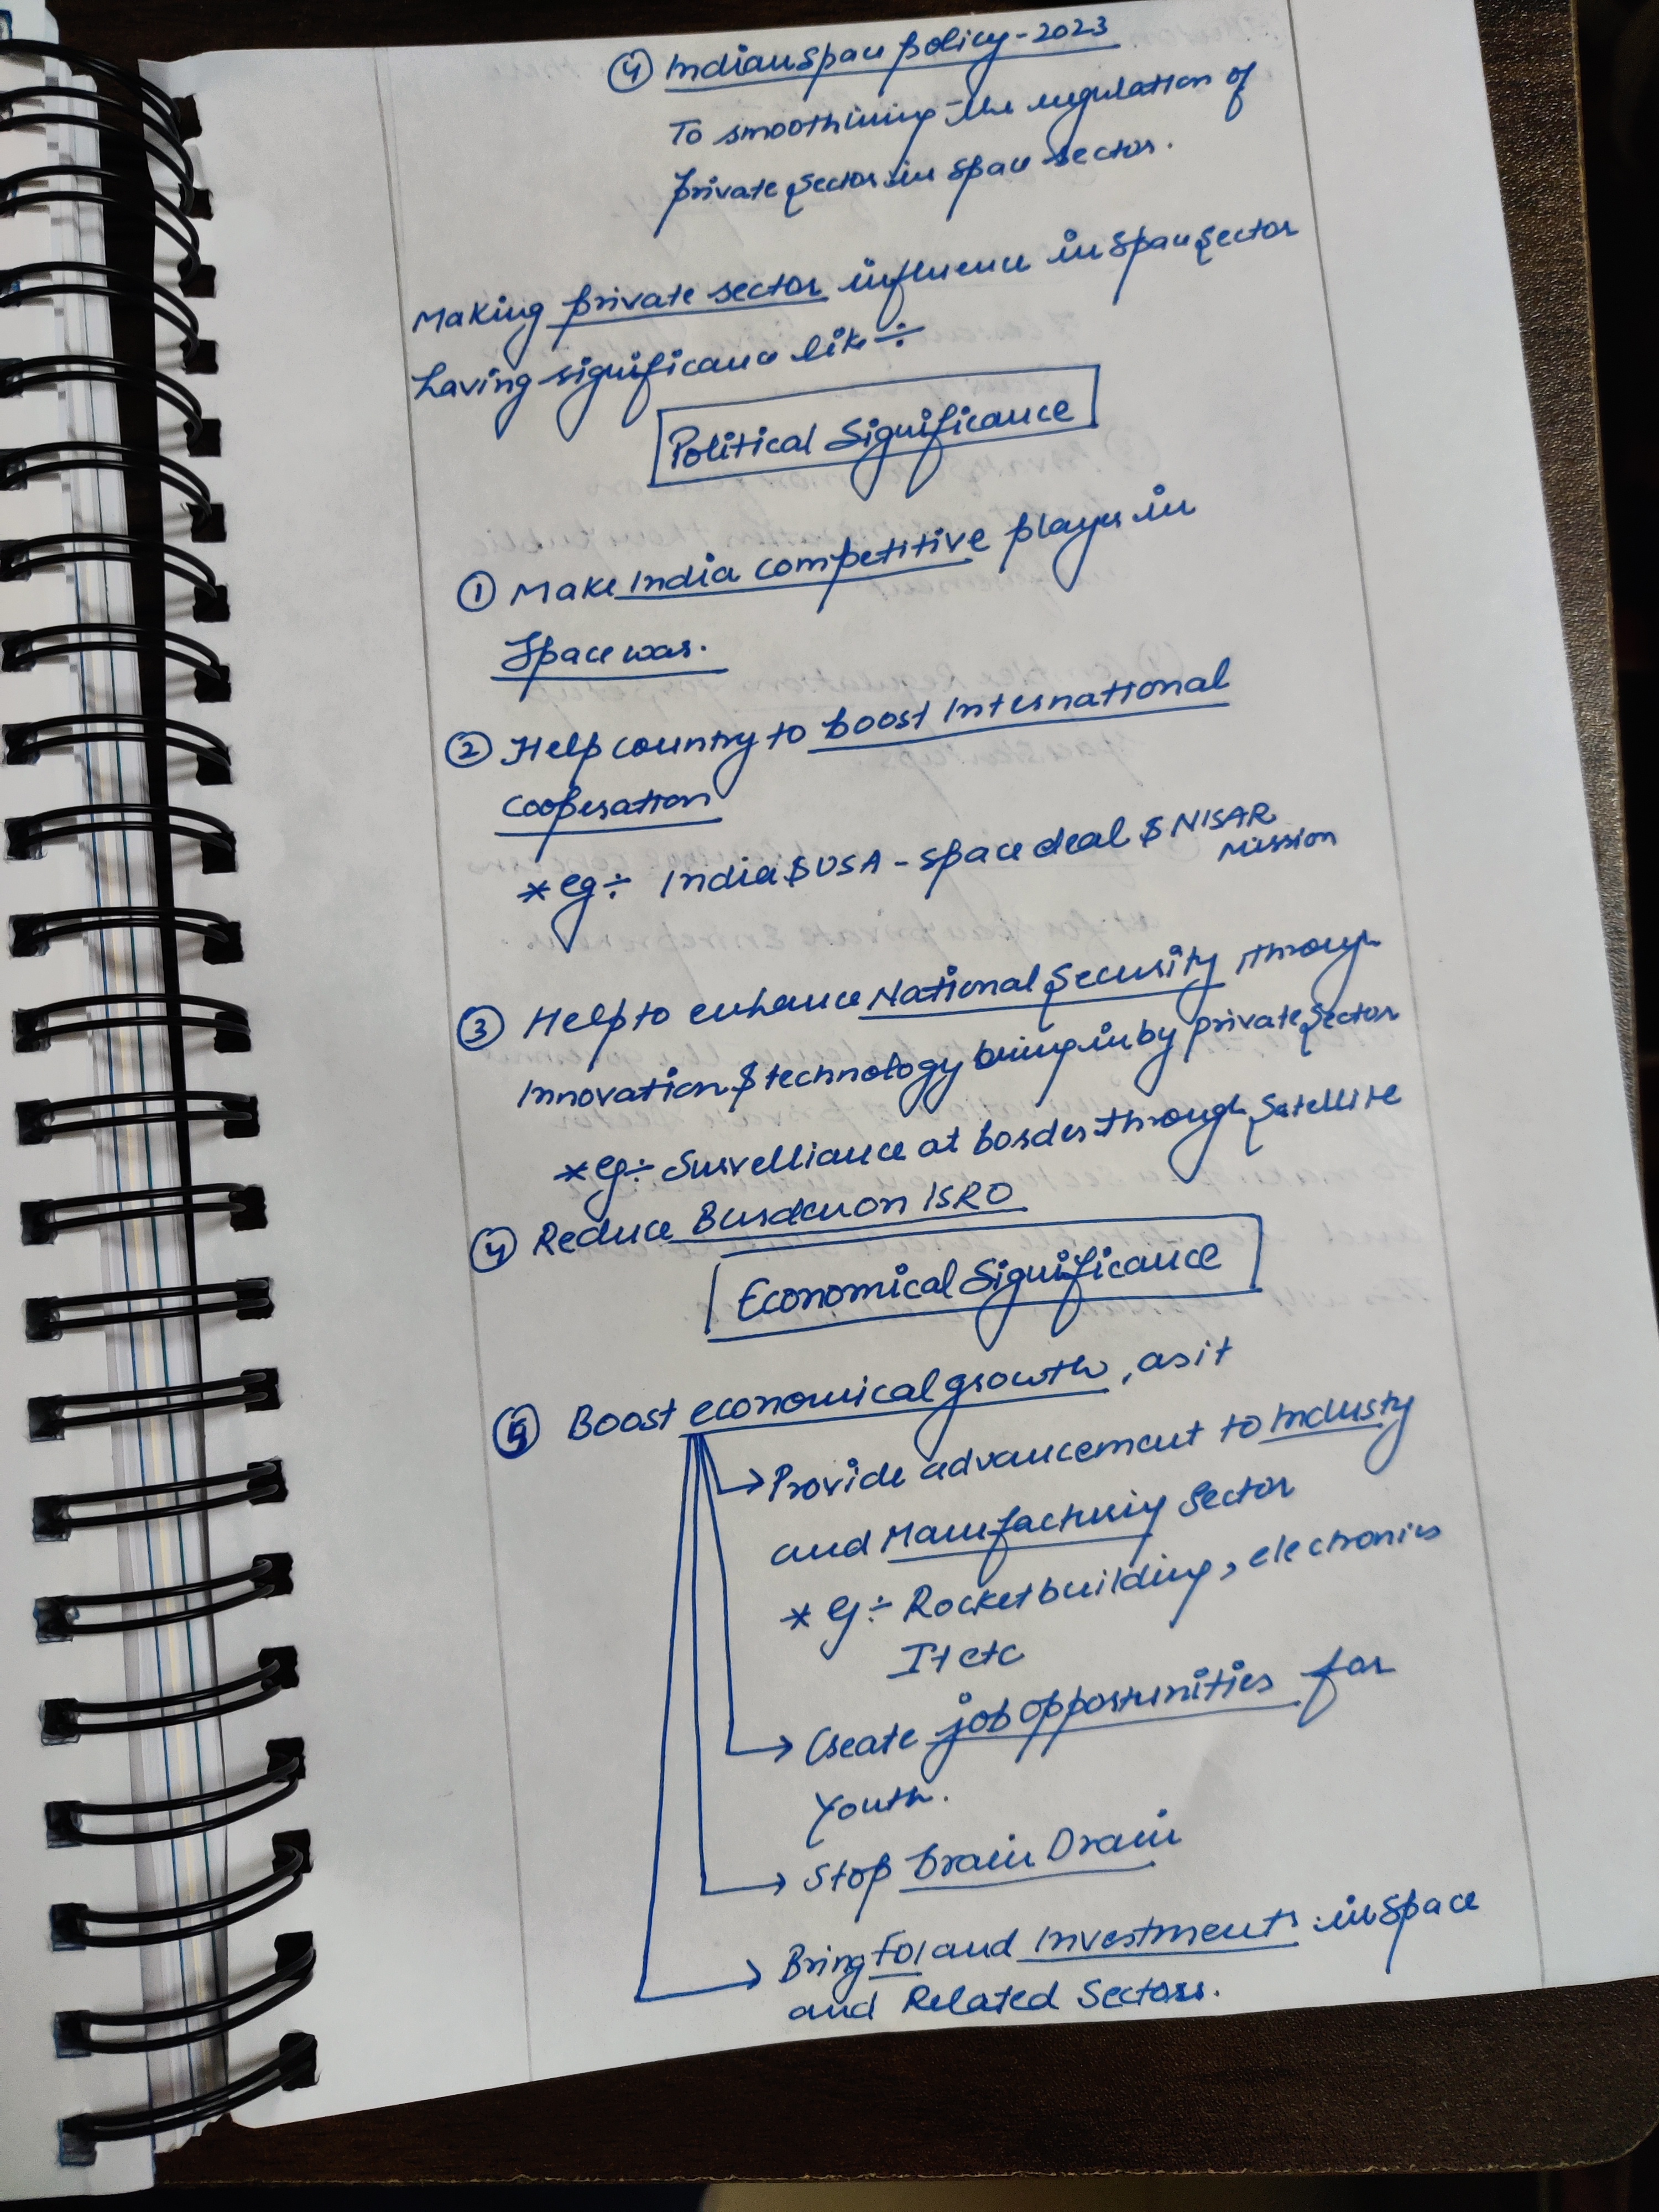 ④ Indian Space policy-2023
To smoothining the regulation of
private sector in space sector.
Making private sector influence in space sector
having significance like ÷
Political Significance
① Make India competitive player in
Space war.
② Help country to boost International
Cooperation
* eg ÷ India & USA - space deal & NISAR
Mission
③ Help to enhance National Security through
Innovation & technology bring in by private sector
* eg ÷ Survelliance at border through Satellite
④ Reduce Burden on ISRO
Economical Significance
⑤ Boost economical growth, as it
→ Provide advancement to Industy
and Manufacturing Sector
* eg ÷ Rocket building, electronics
It etc
→ Create job opportunities for
Youth.
→ Stop brain Drain
→ Bring FDI and Investments in space
and Related Sectors.